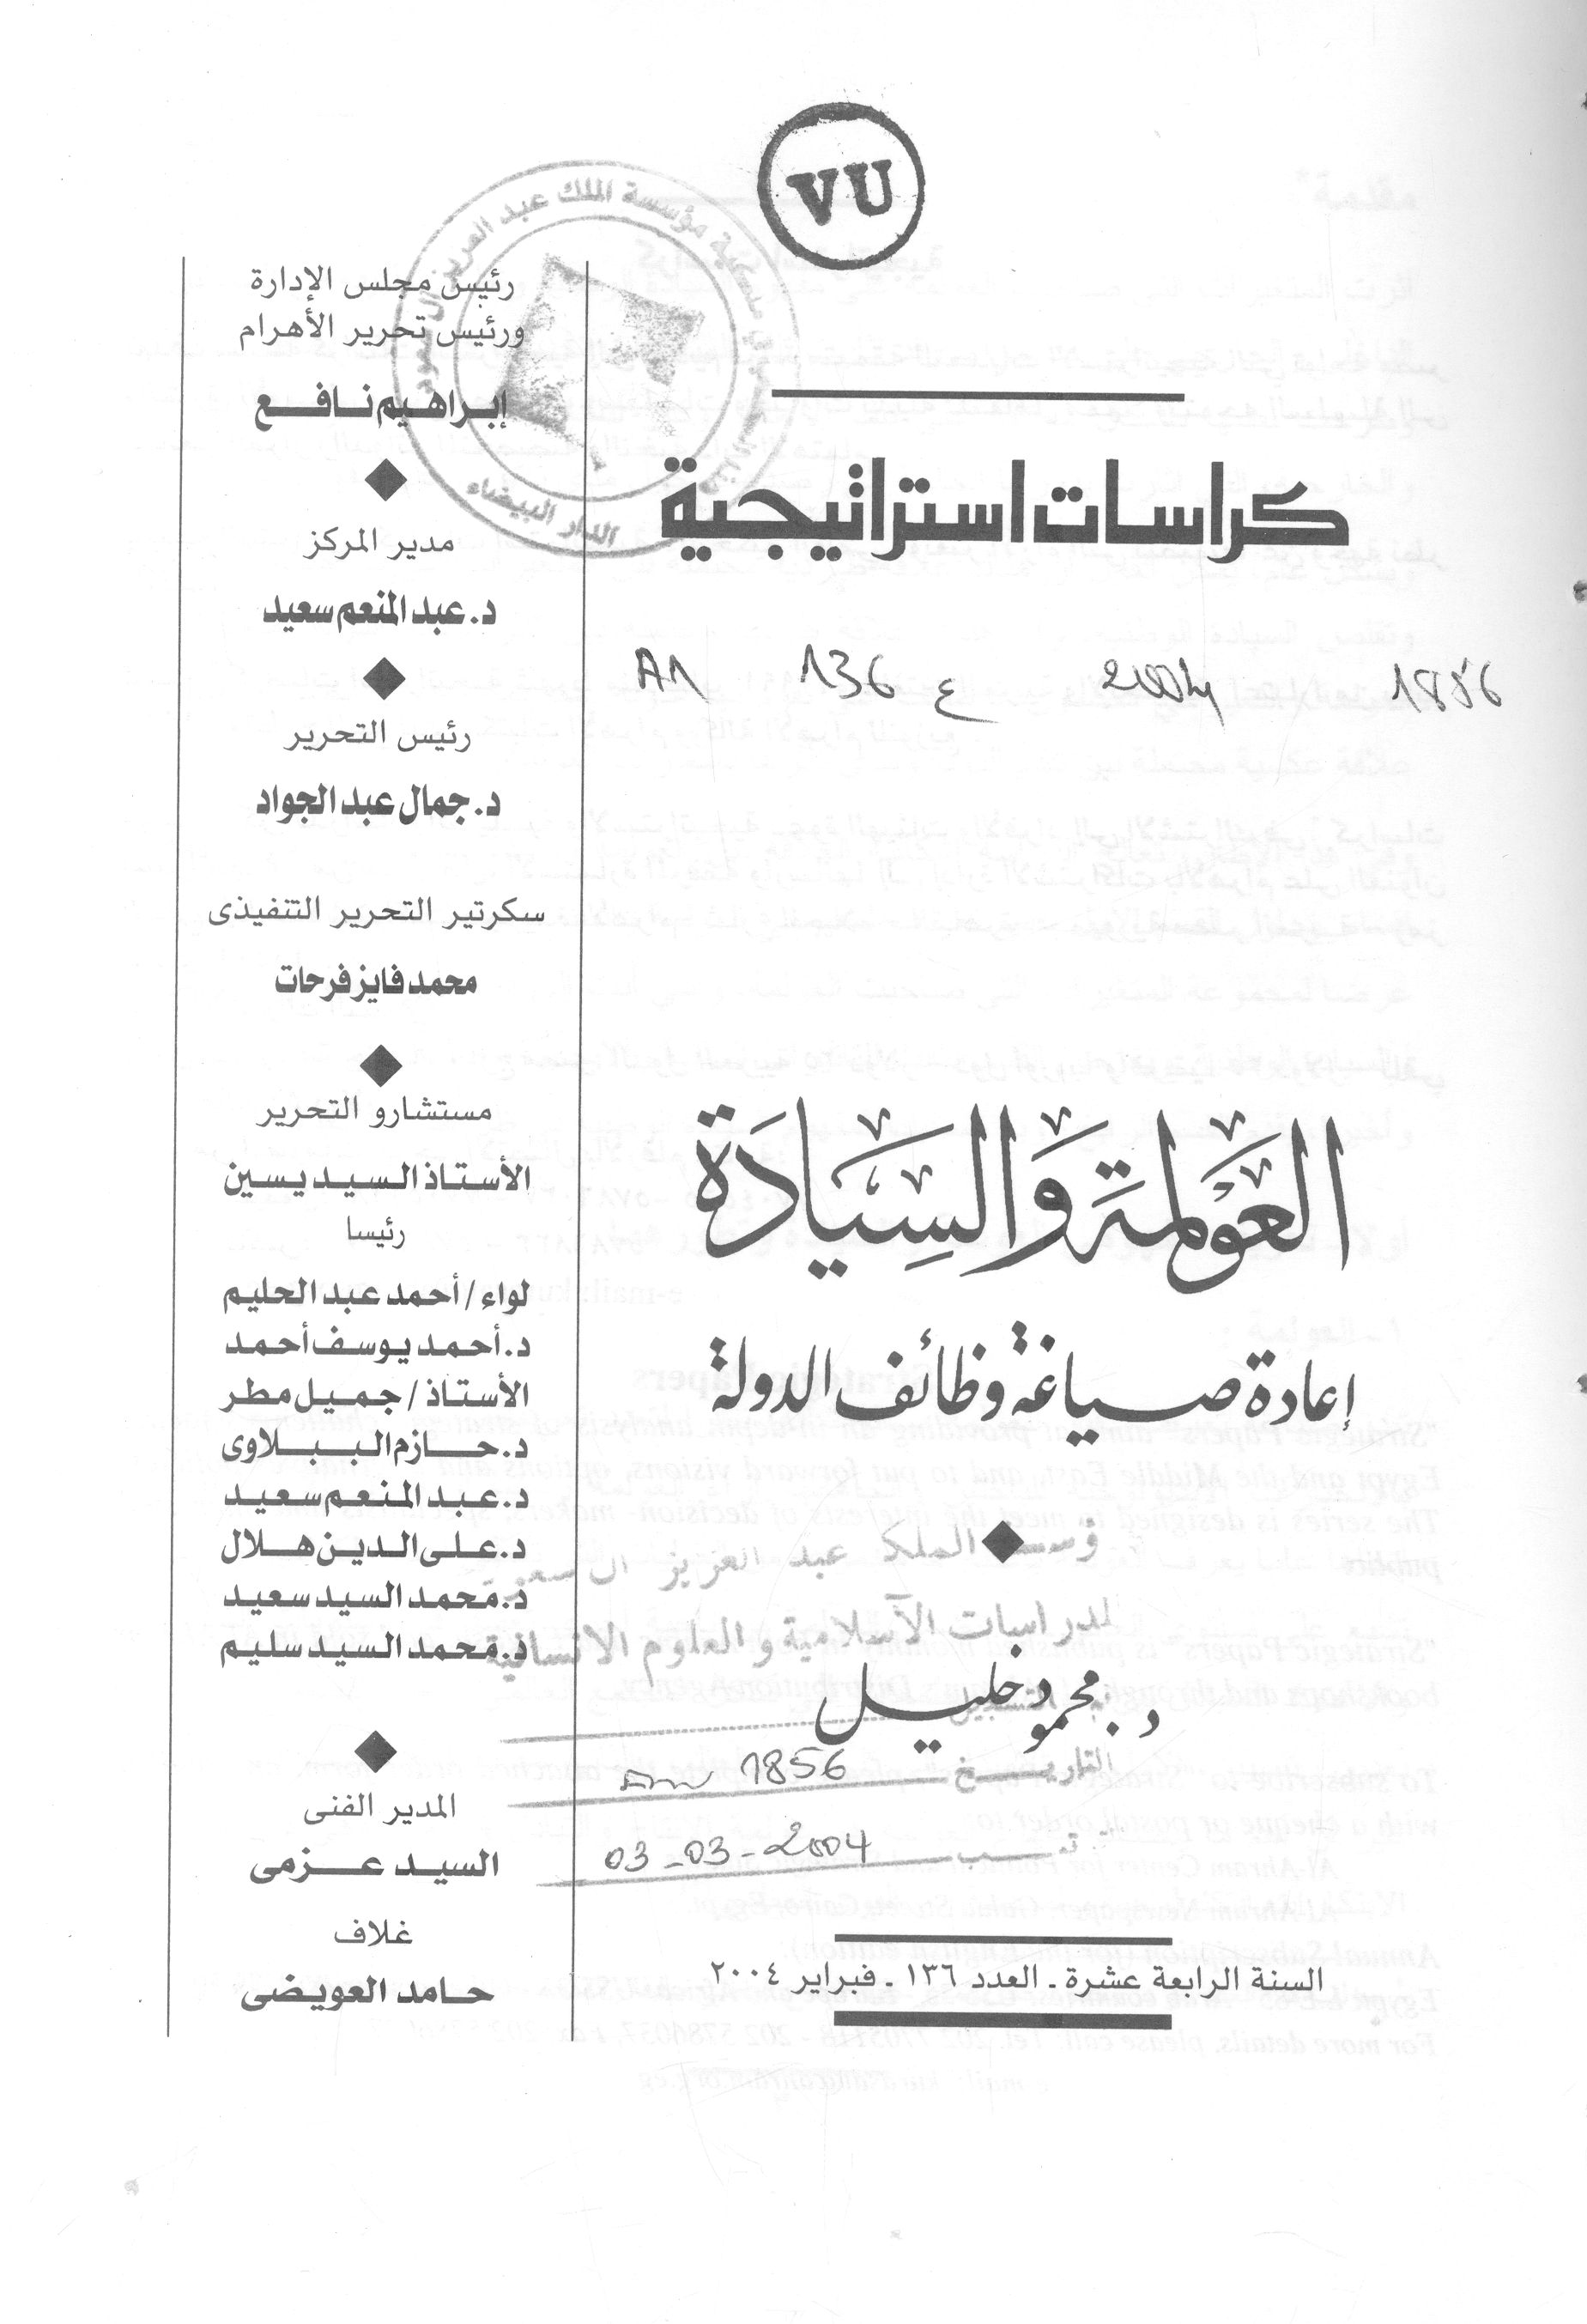 VU
كراسات استراتيجية
A1 136 ع 2004 1856
العَوْلمَة وَالسِيَادَة
إعادة صياغة وظائف الدولة
مؤسسة الملك عبد العزيز آل سعود
للدراسات الآسلامية و العلوم الانسانية
د. محمود خليل
التاريـــخ 1856
03-03-2004
السنة الرابعة عشرة ـ العدد ١٣٦ ـ فبراير ٢٠٠٤
رئيس مجلس الإدارة
ورئيس تحرير الأهرام
إبراهيم نافع
مدير المركز
د. عبد المنعم سعيد
رئيس التحرير
د. جمال عبد الجواد
سكرتير التحرير التنفيذى
محمد فايز فرحات
مستشارو التحرير
الأستاذ السيد يسين
رئيسا
لواء / أحمد عبد الحليم
د. أحمد يوسف أحمد
الأستاذ / جميل مطر
د. حازم الببلاوى
د. عبد المنعم سعيد
د. على الدين هلال
د. محمد السيد سعيد
د. محمد السيد سليم
المدير الفنى
السيد عزمى
غلاف
حامد العويضى
مكتبة مؤسسة الملك عبد العزيز آل سعود
الدار البيضاء